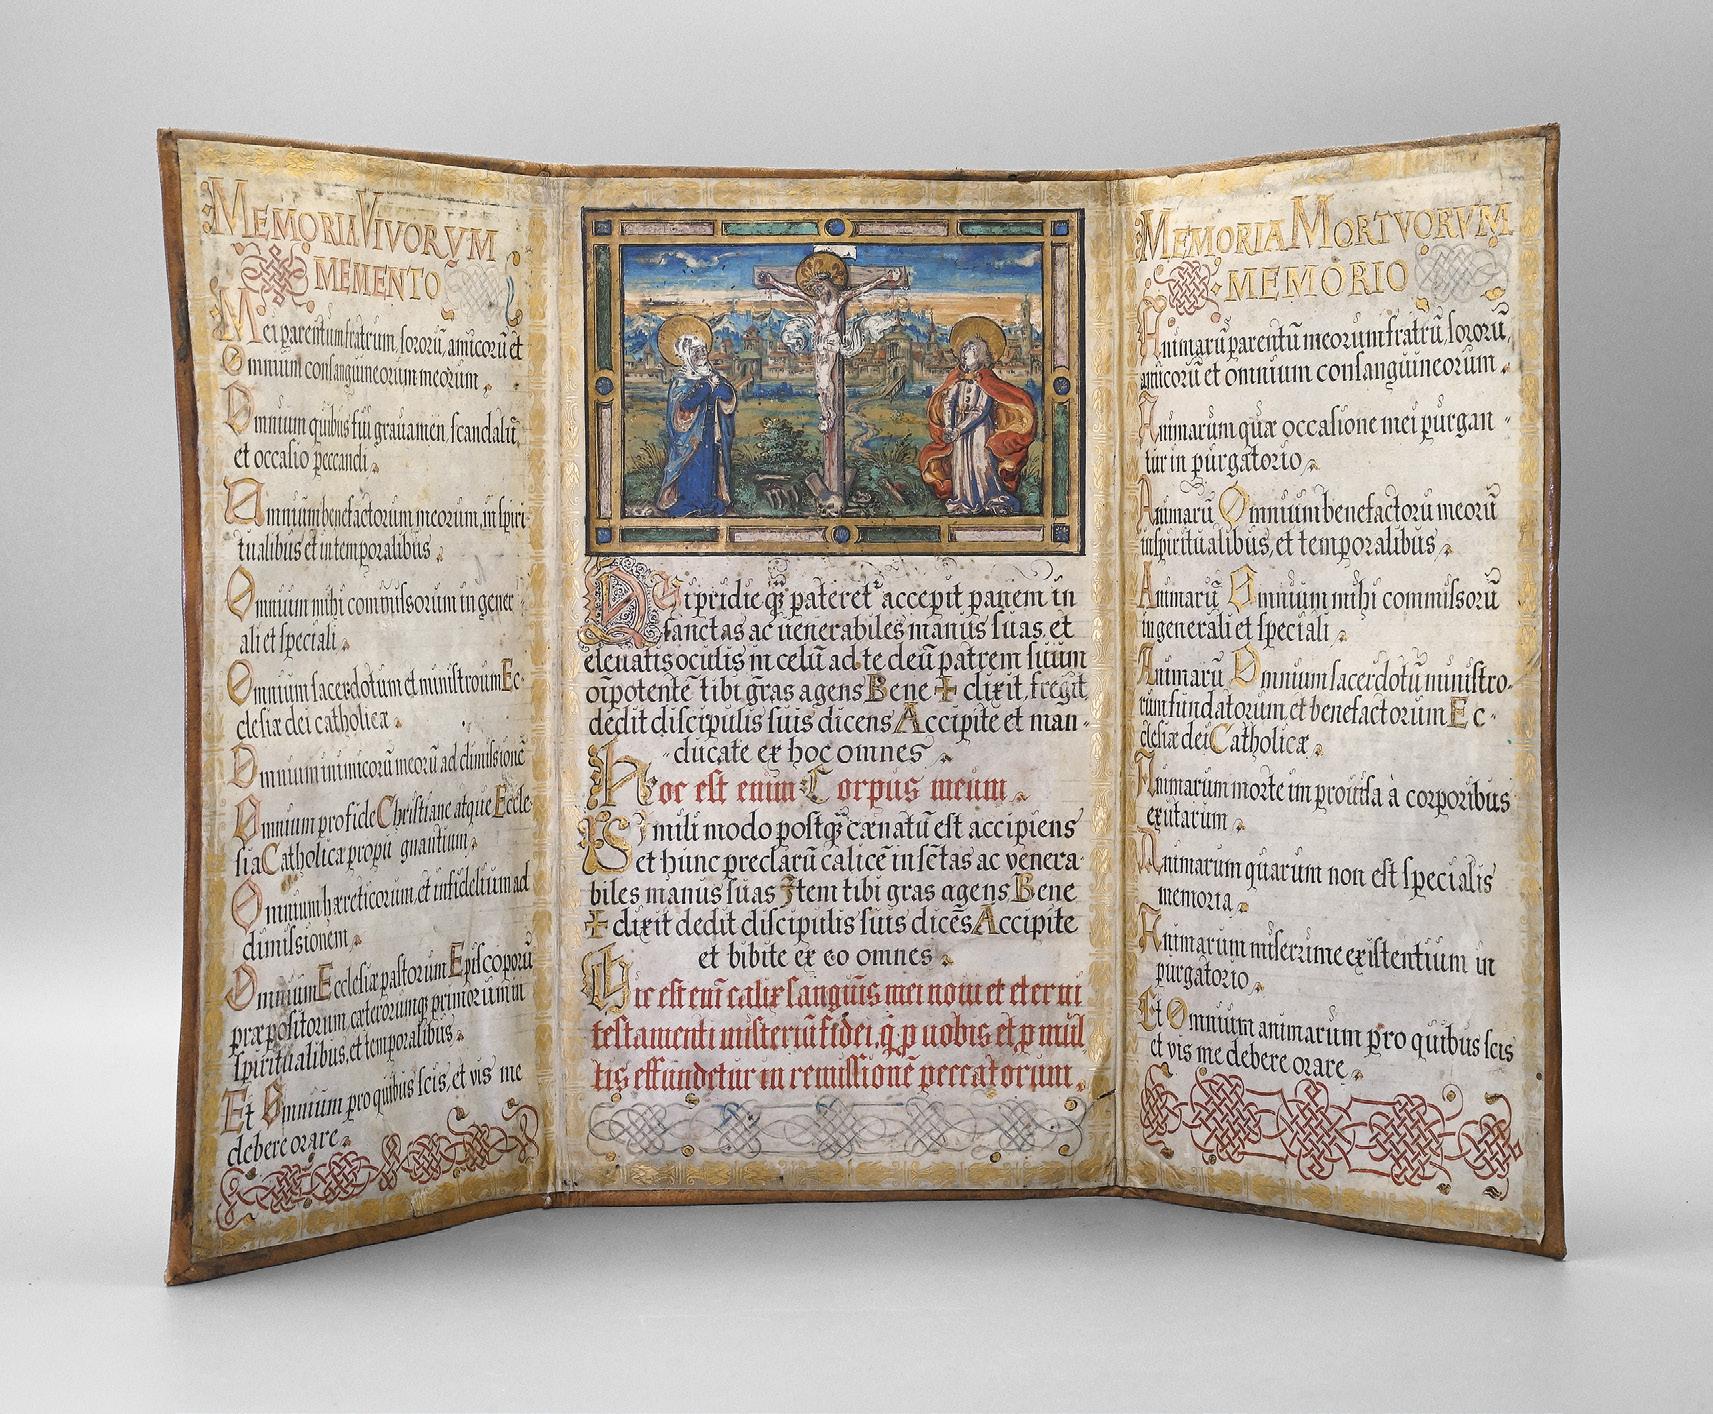 MEMORIA VIVORVM
MEMENTO
Mei parentum fratrum, sororũ, amicorũ et
Omnium consanguineorum meorum.
Omnium quibus fui gravamen, scandalũ,
et occasio peccandi.
Omnium benefactorum meorum, in spiri-
tualibus et in temporalibus.
Omnium mihi commissorum in gener-
ali et speciali.
Omnium sacerdotum et ministroum Ec-
clesiæ dei catholicæ.
Omnium inimicorũ meorũ ad dimissionẽ
Omnium pro fide Christiane atque Eccle-
sia Catholica propu gnantium.
Omnium hæreticorum, et infidelium ad
dimissionem.
Omnium Ecclesiæ pastorum Episcoporũ
præpositorum, cæterorumq; primorum in
spiritualibus, et temporalibus.
Et Omnium pro quibus scis, et vis me
debere orare.
Qui pridie q3 pateret² accepit panem in
sanctas ac uenerabiles manus suas, et
eleuatis oculis in celũ ad te deũ patrem suum
oĩpotentẽ tibi grãs agens Bene ✝ dixit, fregit
dedit discipulis suis dicens Accipite et man-
-ducate ex hoc omnes.
Hoc est enim Corpus meum.
Simili modo postq3 cænatũ est accipiens
et hunc preclarũ calicẽ in sc̃tas ac venera-
biles manus suas Item tibi gras agens Bene
✝ dixit dedit discipulis suis dicẽs Accipite
et bibite ex eo omnes.
Hic est eni᷈ calix sangui᷈s mei noui et eterni
testamenti misteriũ fidei, q̃ p uobis et p mul
tis effundetur in remissionẽ peccatorum.
MEMORIA MORTVORVM
MEMORIO
Animarũ parentũ meorum fratrũ, sororũ,
amicorũ et omnium consanguineorum.
Animarum quæ occasione mei purgan-
tur in purgatorio.
Animarũ Omnium benefactorũ meorũ
in spiritualibus, et temporalibus.
Animarũ Omnium mihi commissorũ
in generali et speciali.
Animarũ Omnium sacerdotũ ministro-
rum fundatorum, et benefactorum Ec-
clesiæ dei Catholicæ.
Animarum morte im prouisa à corporibus
exutarum.
Animarum quarum non est specialis
memoria.
Animarum miserrime existentium in
purgatorio.
Et Omnium animarum pro quibus scis
et vis me debere orare.